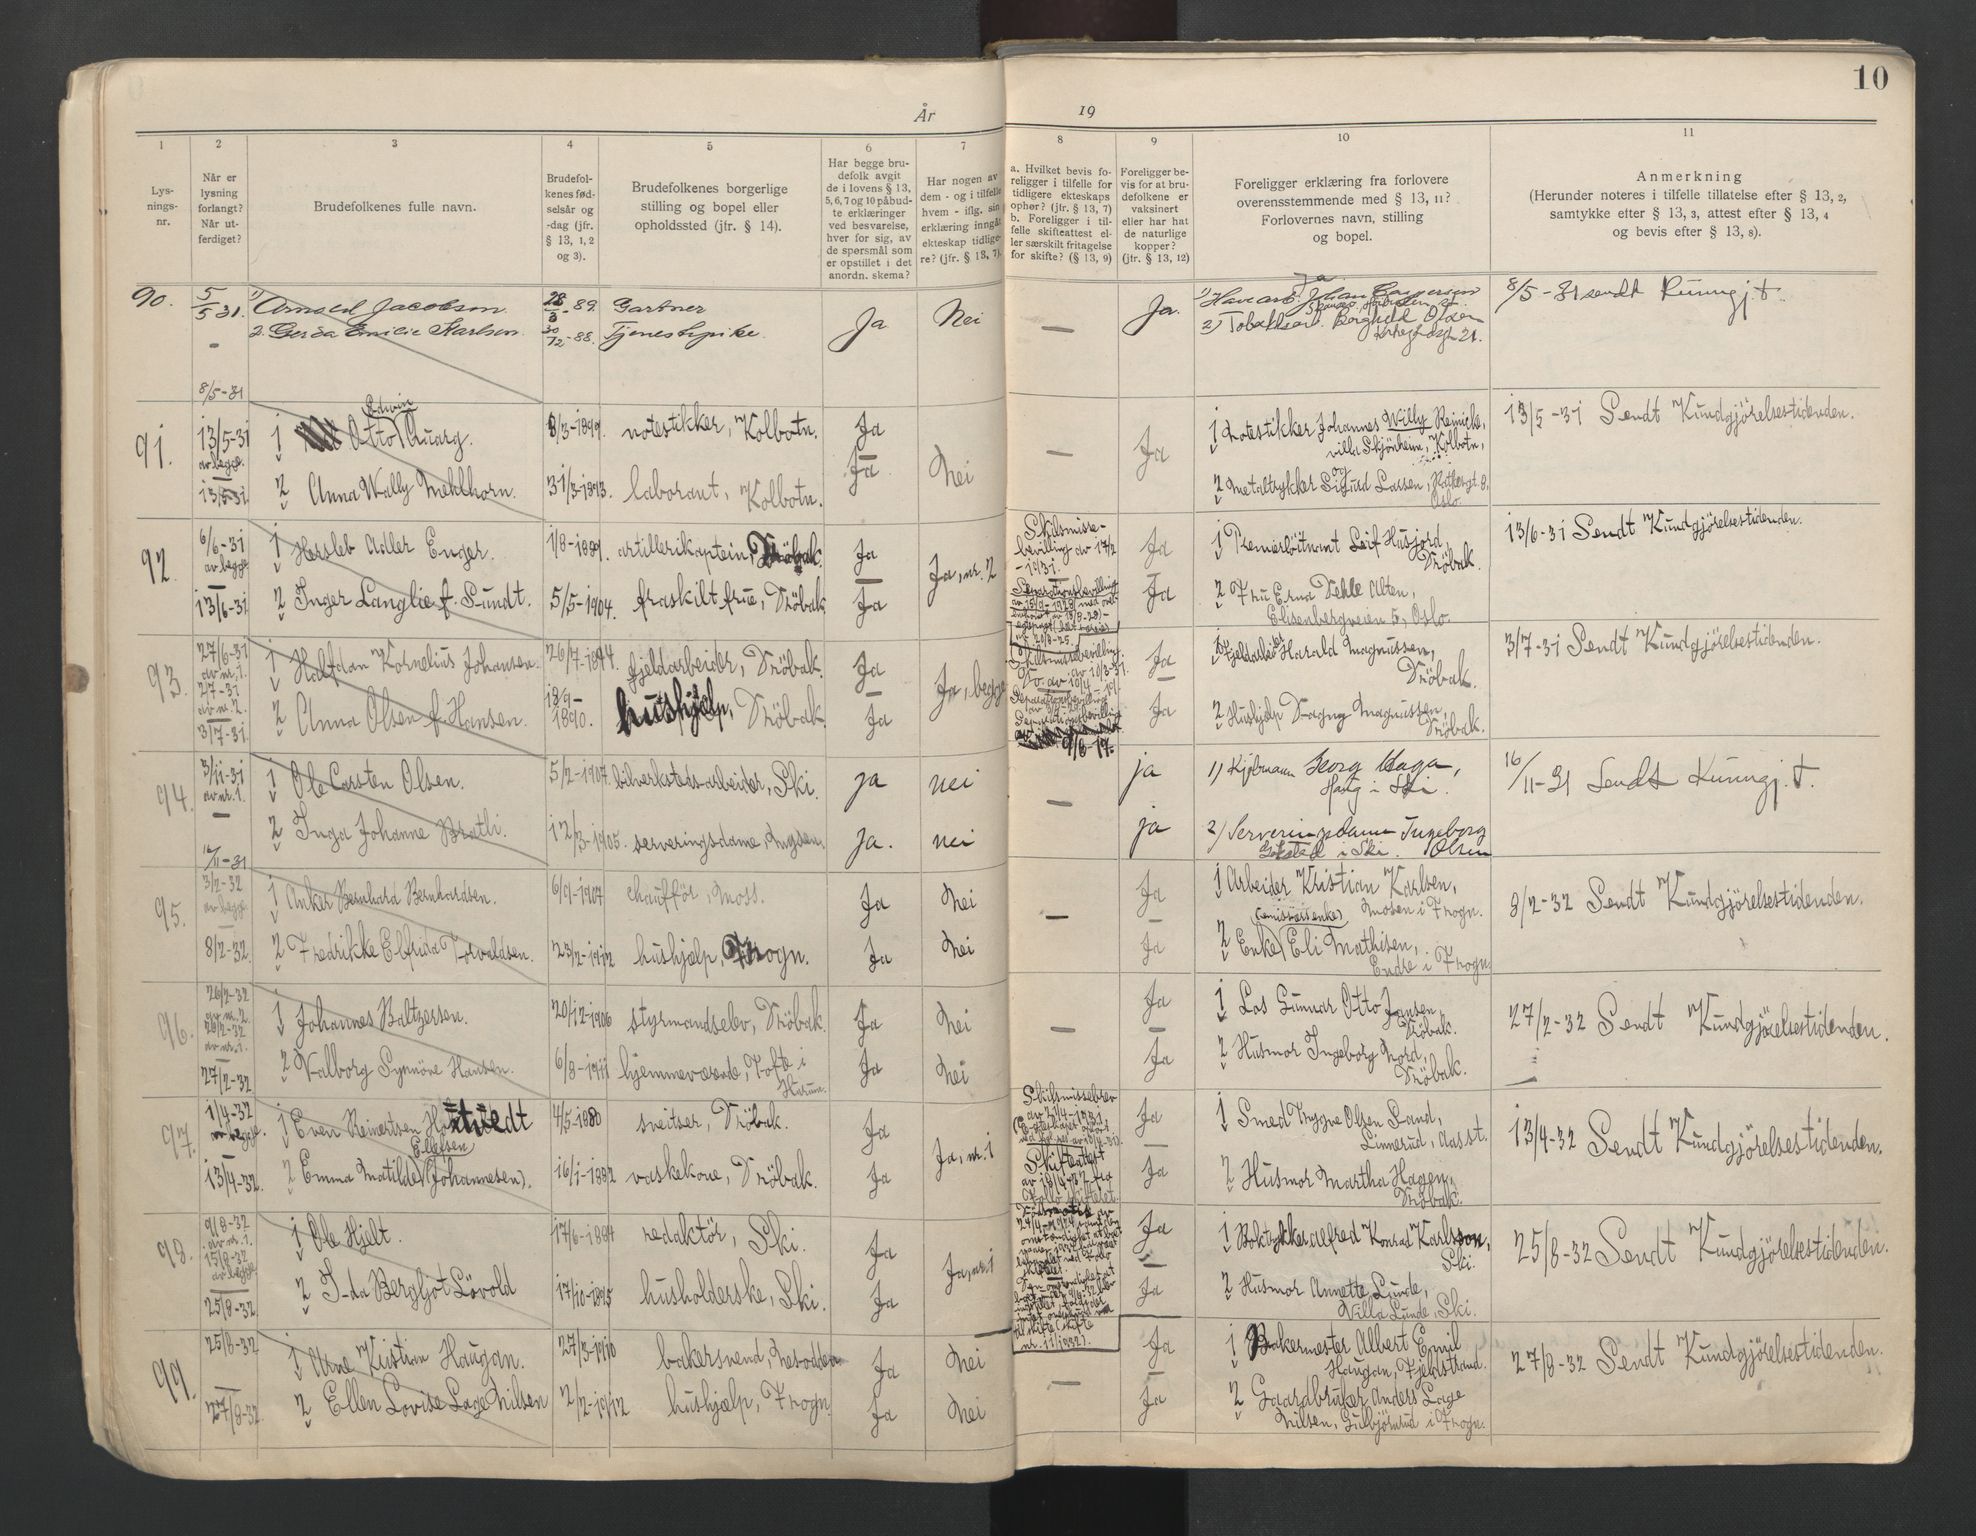 10
År
19
1
2
3
4
5
6
7
8
9
10
11
Lys-
nings-
nr.
Når er
lysning
forlangt?
Når ut-
ferdiget?
Brudefolkenes fulle navn.
Brudefol-
kenes fød-
selsår og
-dag (jfr.
§ 13, 1, 2
og 3).
Brudefolkenes borgerlige
stilling og bopel eller
opholdssted (jfr. § 14).
Har begge bru-
defolk avgit
de i lovens § 13,
5, 6, 7 og 10 påbud-
te erklæringer
ved besvarelse,
hver for sig, av
de spørsmål som
er opstillet i det
anordn. skema?
Har nogen av
dem - og i tilfelle
hvem - iflg. sin
erklæring inngåt
ekteskap tidlige-
re? (jfr. § 13, 7).
a. Hvilket bevis fo-
religger i tilfelle for
tidligere ekteskaps
ophør? (jfr. § 13, 7)
b. Foreligger i til-
felle skifteattest el-
ler særskilt fritagelse
for skifte? (§ 13, 9)
Foreligger be-
vis for at bru-
defolkene er
vaksinert
eller har hat
de naturlige
kopper?
(jfr. § 13, 12)
Foreligger erklæring fra forlovere
overensstemmende med § 13, 11?
Forlovernes navn, stilling
og bopel.
Anmerkning
(Herunder noteres i tilfelle tillatelse efter § 13, 2,
samtykke efter § 13, 3, attest efter § 13, 4
og bevis efter § 13, 8).
90.
5/5 31.
8/5-31
1) Arnold Jacobsen
2. Gerda Emilie Karlsen.
28/3-89. Gartner
30/12-88. Tjenestepike.
Ja
Nei
—
Ja.
Ja.
1) Havearb. Johan Caspersen
2) Tobakksarb. Borghild Olsen
8/5-31 sendt Kunngj.t.
91.
13/5-31
av begge.
13/5-31.
1 Otto Edvin Quarg.
2 Anna Wally Mehlhorn.
8/3-1899. notestikker, Kolbotn.
31/3-1893. laborant, Kolbotn.
Ja
Ja
Nei
—
Ja
1 Notestikker Johannes Willy Reinicke,
villa Skjönheim, Kolbotn,
og
2 Metaltrykker Sigurd Larsen,
Oslo.
13/5-31 Sendt Kundgjörelsestidenden.
92.
6/6-31
av begge
13/6-31
1 Hersleb Adler Enger.
2 Inger Langlie f. Sundt.
1/8-1891. artillerikaptein, Dröbak.
5/5-1904. fraskilt frue, Dröbak
Ja
Ja
Ja, nr. 2
Skilsmisse-
bevilling av 17/2
-1931.
Ja
Ja
1 Premierlöitnant Leif Husjord,
Dröbak.
2 Fru Erna Vehle Alten,
Elisenbergveien 5, Oslo
13/6-31 Sendt Kundgjörelsestidenden.
93.
27/6-31
av nr. 1.
2/7-31
av nr. 2.
3/7-31.
1 Halfdan Kornelius Johansen.
2 Anna Olsen f. Hansen.
26/7-1894. fjeldarbeider, Dröbak.
1890. hushjælp, Dröbak.
Ja
Ja
Ja, begge
9/6-17.
Ja
Ja
1 Fjeldarbeider Harald Magnussen,
Dröbak.
2 Hushjelp Dagny Magnussen,
Dröbak.
3/7-31 Sendt Kundgjörelsestidenden.
94.
3/11-31
av nr. 1.
16/11-31
1 Ole Carsten Olsen.
2 Inga Johanne Bratli.
5/2-1907. bilverkstedsarbeider, Ski.
12/3-1905. serveringsdame,
ja
ja.
nei
nei
—
ja
ja
1) Kjøbmann Georg Hauga,
Haug i Ski.
2) Serveringsdame Ingeborg
Olsen
i Ski.
16/11-31 Sendt Kunngj.t.
95.
3/2-32
av begge.
8/2-32.
1 Anker Bernhard Bernhardsen.
2 Fredrikke Elfrida Torvaldsen.
6/9-1907 chaufför, Moss.
23/2-1912 hushjælp, Frogn.
Ja
Ja
Nei
Nei
—
Ja
Ja
1 Arbeider Kristian Karlsen,
Mosen i Frogn.
2 Enke Eli Mathisen,
Endre i Frogn.
8/2-32 Sendt Kundgjörelsestidenden.
96.
26/2-32
av nr. 2.
26/2-32
av nr. 1.
27/2-32
1 Johannes Baltzersen.
2 Valborg Synnöve Hansen.
20/12-1906 styrmandselev, Dröbak.
6/8-1911 hjemmeværende, Tofte i
Hurum.
Ja
Ja
Nei
Nei
—
Ja
Ja
1 Los Gunnar Otto Jansen,
Dröbak.
2 Husmor Ingeborg Nord,
Dröbak.
27/2-32 Sendt Kundgjörelsestidenden.
97.
1/4-32
av begge.
13/4-32.
1 Even Reinertsen
Ellefsen
2 Emma Matilde (Johannesen).
4/5-1880 sveitser, Dröbak.
16/1-1882 vaskekone, Dröbak.
Ja
Ja
Ja, nr. 1
Skilsmissebrev
av 21/4-1931.
Skifteattest
Ja
Ja
1 Smed Trygve Olsen Sand,
Linnerud, Aas st.
2 Husmor Martha Hagen,
Dröbak.
13/4-32 Sendt Kundgjörelsestidenden.
98.
9/8-32
av nr. 1.
15/8-32
av begge.
25/8-32.
1 Ole Hjelt.
2 Ida Bergljot Lövold
17/6-1884 redaktör, Ski.
17/10-1895 husholderske, Ski.
Ja
Ja
Ja, nr. 1
nr. 11/1932).
Ja
Ja
1 Boktrykker Alfred Konrad Karlsson,
Ski.
2 Husmor Annette Lunde,
Villa Lunde, Ski.
25/8-32 Sendt Kundgjörelsestidenden.
99.
25/8-32
27/8-32.
1 Arne Kristian Haugan.
2 Ellen Lovise Lage Nilsen
27/3-1910 bakersvend, Nesodden
2/2-1912 hushjælp, Frogn.
Ja
Ja
Nei
Nei
—
Ja
Ja
1 Bakermester Albert Emil
Haugan, Fjeldstrand.
2 Gaardbruker Anders Lage
Nilsen, Gulbjörnrud i Frogn.
27/8-32 Sendt Kundgjörelsestidenden.